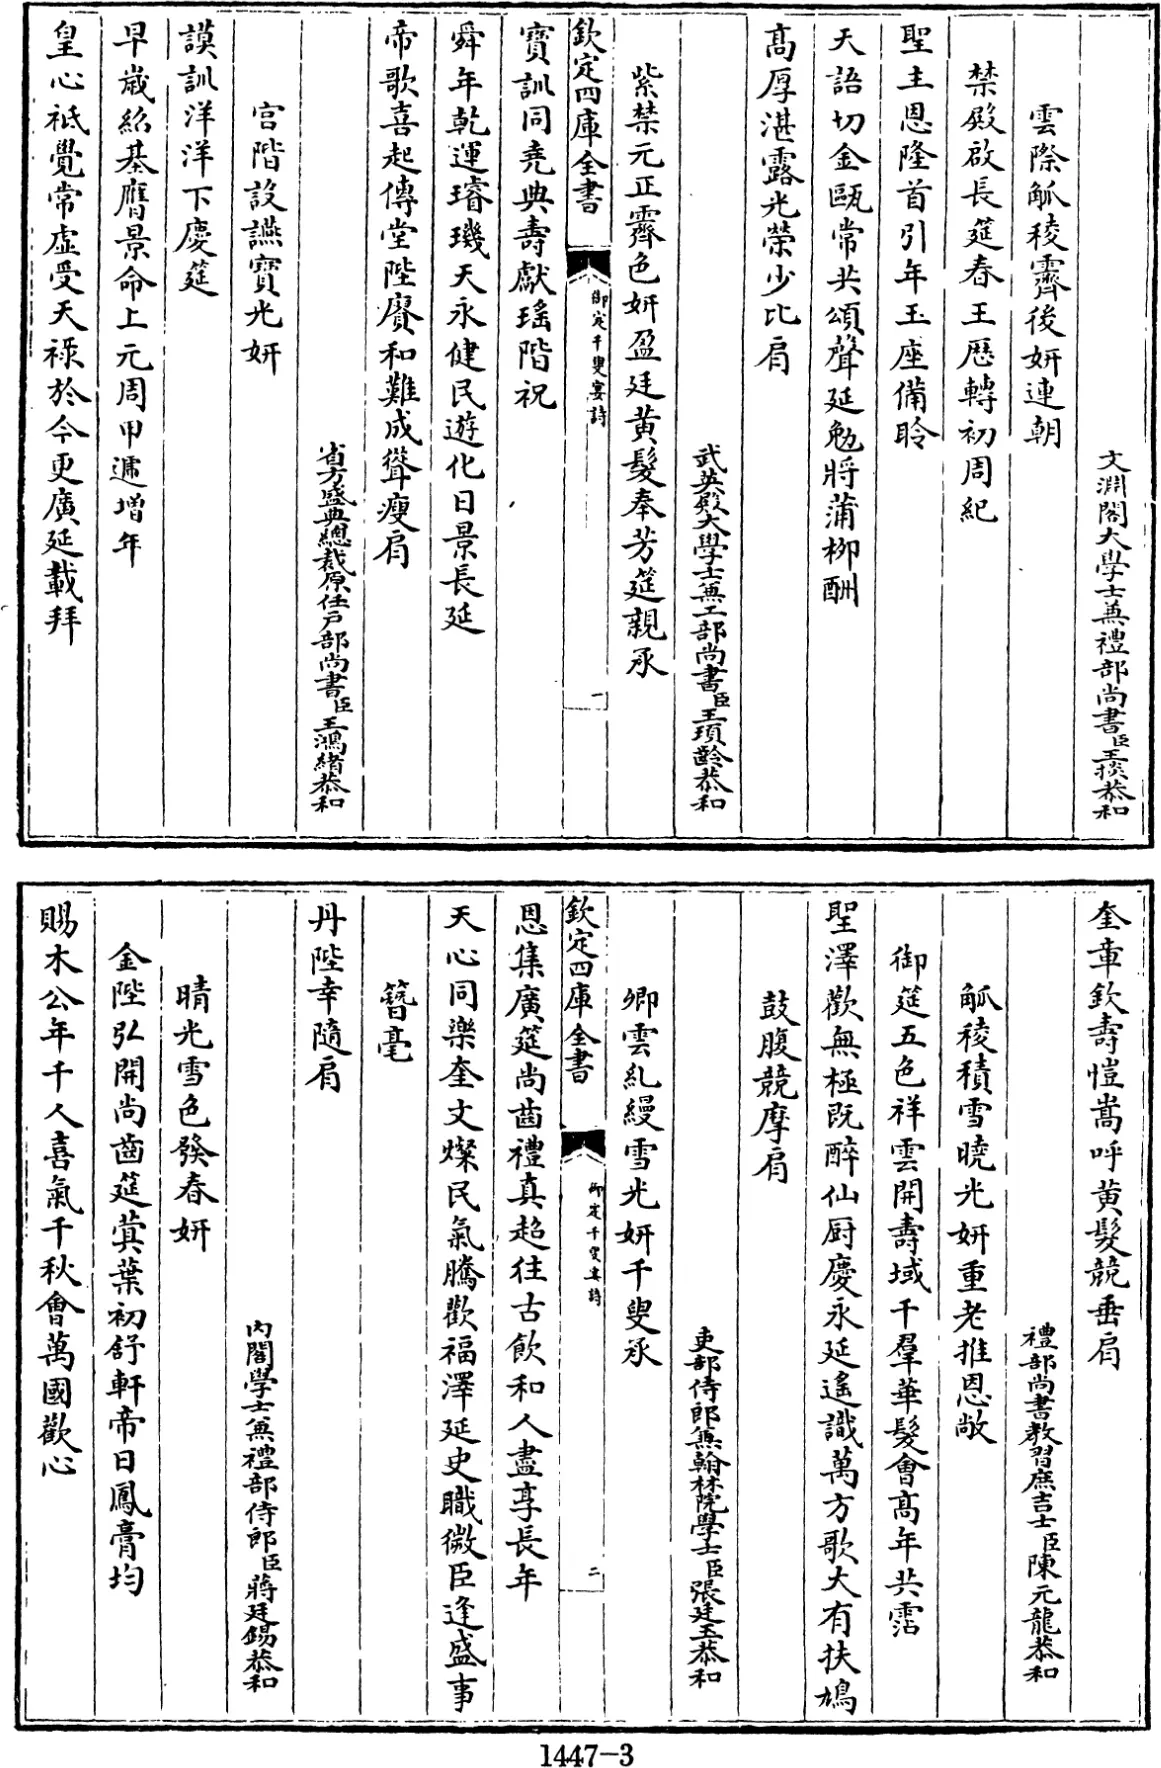 文淵閣大學士兼禮部尚書臣王掞恭和
雲際觚稜霽後妍連朝
禁殿啟長筵春王厯轉初周紀
聖主恩隆首引年玉座備聆
天語切金甌常共頌聲延勉將蒲柳酬
髙厚湛露光榮少比肩
武英殿大學士兼工部尚書臣王頊齡恭和
紫禁元正霽色妍盈廷黄髮奉芳筵親承
欽定四庫全書
御定千叟宴詩
一
寳訓同堯典壽獻瑤階祝
舜年乾運璿璣天永健民遊化日景長延
帝歌喜起傳堂陛賡和難成聳瘦肩
省方盛典總裁原任戸部尚書臣王鴻緒恭和
宫階設讌寳光妍
謨訓洋洋下慶筵
早嵗紹基膺景命上元周甲遞增年
皇心祇覺常虛受天祿於今更廣延載拜
奎章欽壽愷嵩呼黄髮競垂肩
禮部尚書教習庶吉士臣陳元龍恭和
觚稜積雪曉光妍重老推恩敞
御筵五色祥雲開壽域千羣華髮會髙年共霑
聖澤歡無極既醉仙厨慶永延遙識萬方歌大有扶鳩
鼓腹競摩肩
吏部侍郎兼翰林院學士臣張廷玉恭和
卿雲糺縵雪光妍千叟承
欽定四庫全書
御定千叟宴詩
二
恩集廣筵尚齒禮真超往古飲和人盡享長年
天心同樂奎文燦民氣騰歡福澤延史職微臣逢盛事
簪毫
丹陛幸隨肩
内閣學士兼禮部侍郎臣蔣廷錫恭和
晴光雪色發春妍
金陛弘開尚齒筵蓂葉初舒軒帝日鳳膏均
賜木公年千人喜氣千秋會萬國歡心
1447-3